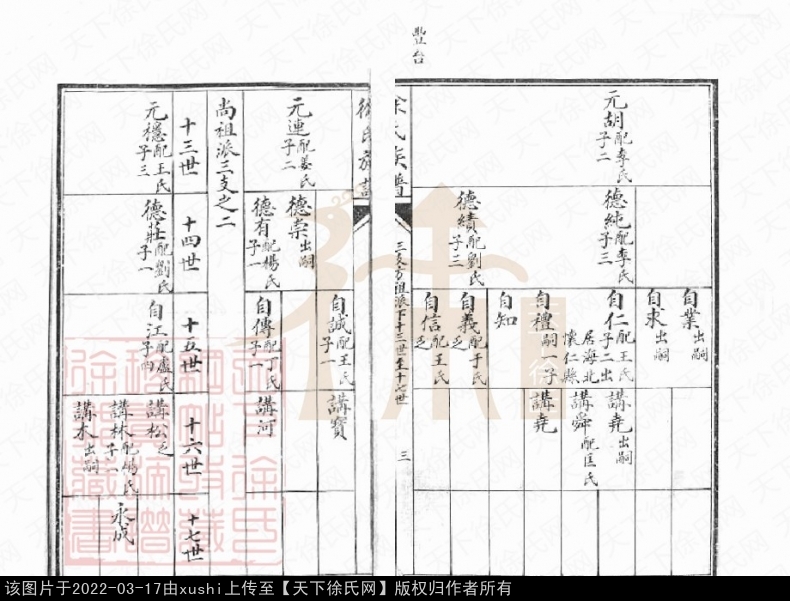 豊台
元胡配李氏子二
德純配李氏子三
德績配劉氏子三
自業出嗣
自求出嗣
自仁配王氏子二出居海北懷仁縣
自禮嗣一子
自知
自義配于氏乏
自信配王氏乏
講堯出嗣
講舜配匡氏
講堯
徐氏族譜
三支方祖派下十三世至十七世
三
元連配姜氏子二
德崇出嗣
德有配楊氏子一
自誠配王氏子一
自傳配丁氏子一
講寶
講河
尚祖派三支之二
十三世
十四世
十五世
十六世
十七世
元穩配王氏子三
德莊配劉氏子一
自江配盧氏子四
講松乏
講林配楊氏子一
講木出嗣
永成
徐
天下徐氏网
该图片于2022-03-17由xushi上传至【天下徐氏网】版权归作者所有